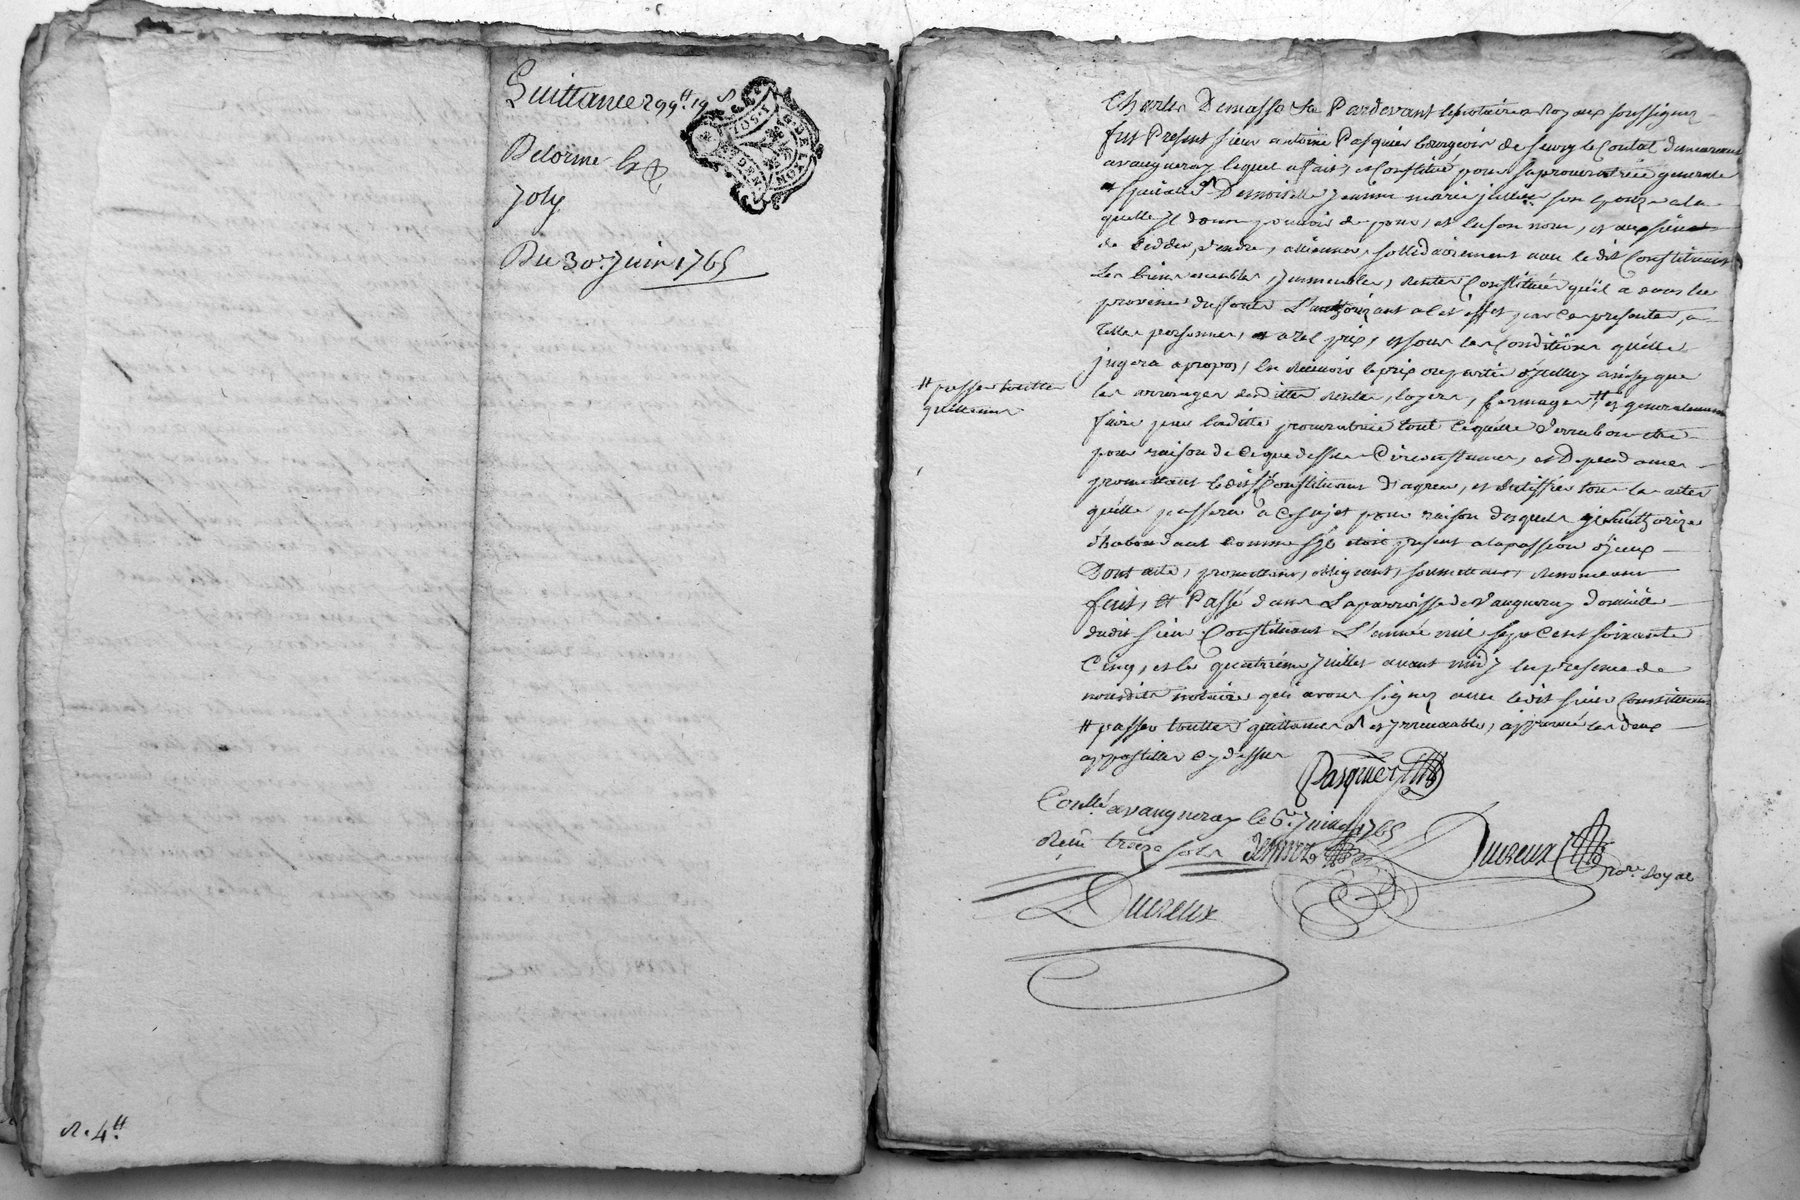 Quittance 299ᵗᵗ 19 s
Delorme
Joly
Du 30e Juin 1765
G. DE LYON
R. 4ᵗᵗ
Pardevant les notaires Royaux soussignez
fut Present sieur antoine Pasquier bourgeois de
avaugneray lequel a fait, et Constitué pour sa procuratrice generale
et speciale Demoiselle Jeanne marie Jullien son epouze a la
quelle Il donne pouvoir de pour, et en son nom, et
de ceder, vendre, alliener, sollidairement avec ledit Constituant
les biens meubles, Immeubles, rentes Constituées qu'il a dans les
L'authorizant a cet effet par ces presentes, a
telles personnes, et a tel prix, et sous les Conditions qu'elle
jugera apropos, en recevoir le prix ou partie d'Iceluy ainsy que
les arrerages desdittes rentes, loyers, fermages, # et generalement
# passer touttes
quittances
faire pour laditte procuratrice tout ce qu'elle verra bon etre
pour raison de ce que dessus Circonstances, et Dependances
promettant ledit sr Constituant d'agreer, et Ratiffier tous les actes
qu'elle passera a ce sujet pour raison desquels il l'authorize
d'habondant comme s'il etoit present a la passion d'Iceux
Dont acte, promettant, obligeant, soumettant, renonceant
fait, et Passé dans la parroisse de Vaugneray domicile
dudit sieur Constituant L'année mil sept cent soixante
Cinq, et le quatrieme Juillet avant midy en presence de
nousdits notaires qui avons signez avec ledit sieur Constituant
# passer touttes quittances et irrevocable, approuvé les deux
apostilles cy dessus
Pasquier
Conllé a vaugneray le 6e Juillet 1765
Reçu treize sols
Ducreux
Nore Royal
Ducreux